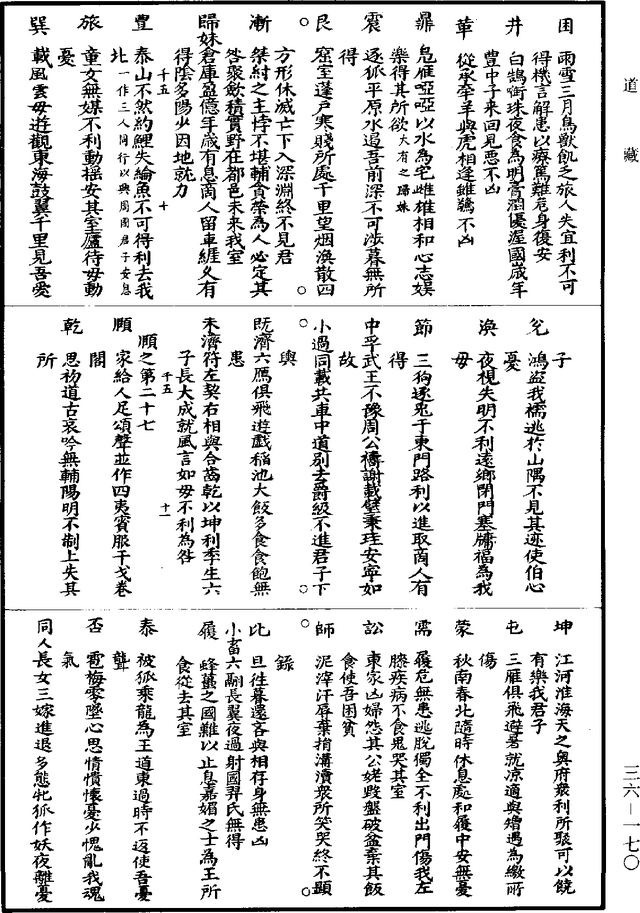 道藏
困　雨雪三月鳥獸飢乏旅人失宜利不可
得機言解患以療篤難危身復安
井　白鵠銜珠夜食為明膏潤優渥國歲年
豐中子來回見惡不凶
革　從承牽羊與虎相逢雖驚不凶
鼎　鳧雁啞啞以水為宅雌雄相和心志娛
樂得其所欲大有之歸妹
震　逐狐平原水遏吾前深不可涉暮無所
得
艮　窟室蓬戶寒賤所處千里望烟渙散四
方形休滅亡下入深淵終不見君
漸　桀紂之主悖不堪輔貪榮為人必定其
咎聚斂積實野在都邑未來我室
歸妹倉庫盈億年歲有息商人留車經久有
得陰多陽少因地就力
千五　十
豐　泰山不然約鯉失綸魚不可得利去我
北一作三人同行以與周國君子安息
旅　童女無媒不利動搖安其室廬待毋動
憂
巽　載風雲毋遊觀東海鼓翼千里見吾愛
子
兌　鴻盜我襦逃於山隅不見其迹使伯心
憂
渙　夜視失明不利遠鄉閉門塞牖福為我
母
節　三狗逐兎于東門路利以進取商人有
得
中孚武王不豫周公禱謝載璧秉珪安寧如
故
小過同載共車中道別去爵級不進君子下
輿
既濟六鴈俱飛遊戲稻池大飲多食食飽無
患
未濟符左契右相與合齒乾以坤利季生六
子長大成就風言如母不利為咎
千五　十一
頤之第二十七
頤　家給人足頌聲並作四夷賓服干戈卷
閣
乾　思初道古哀吟無輔陽明不制上失其
所
坤　江河淮海天之奧府衆利所聚可以饒
有樂我君子
屯　三雁俱飛避暑就凉適與矰遇為繳所
傷
蒙　秋南春北隨時休息處和履中安無憂
需　履危無患逃脫獨全不利出門傷我左
膝疾病不食鬼哭其室
訟　東家凶婦怨其公姥毀盤破盆棄其飯
食使吾困貧
師　泥滓汙辱葉捐溝瀆衆所笑哭終不顯
錄
比　旦往暮還各與相存身無患凶
小畜六翮長翼夜過射國羿氏無得
履　蜂蠆之國難以止息嘉媚之士為王所
食從去其室
泰　被狐乘龍為王道東過時不返使吾憂
聾
否　雹梅零墜心思情憒懷憂少愧亂我魂
氣
同人長女三嫁進退多態牝狐作妖夜離憂
三六—一七〇